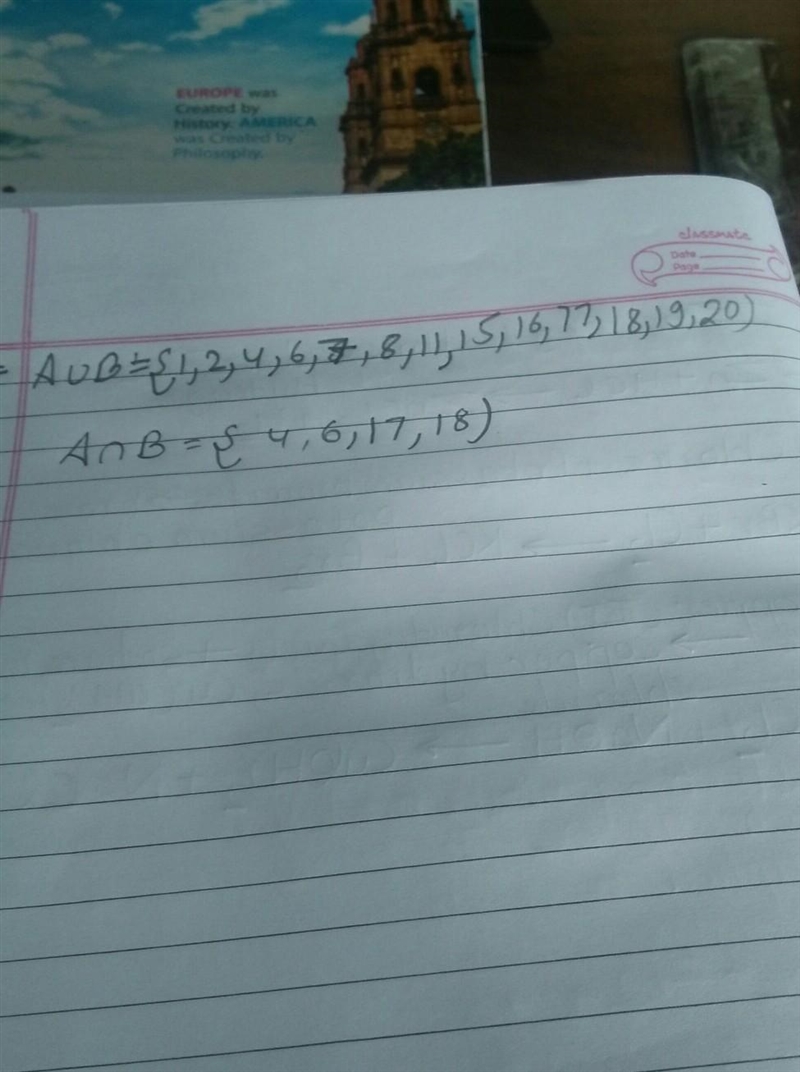 EUROPE was
Created by
History. AMERICA
was Created by
Philosophy.
classmate
Date
Page
= A∪B = {1, 2, 4, 6, 7, 8, 11, 15, 16, 17, 18, 19, 20)
A∩B = { 4, 6, 17, 18)